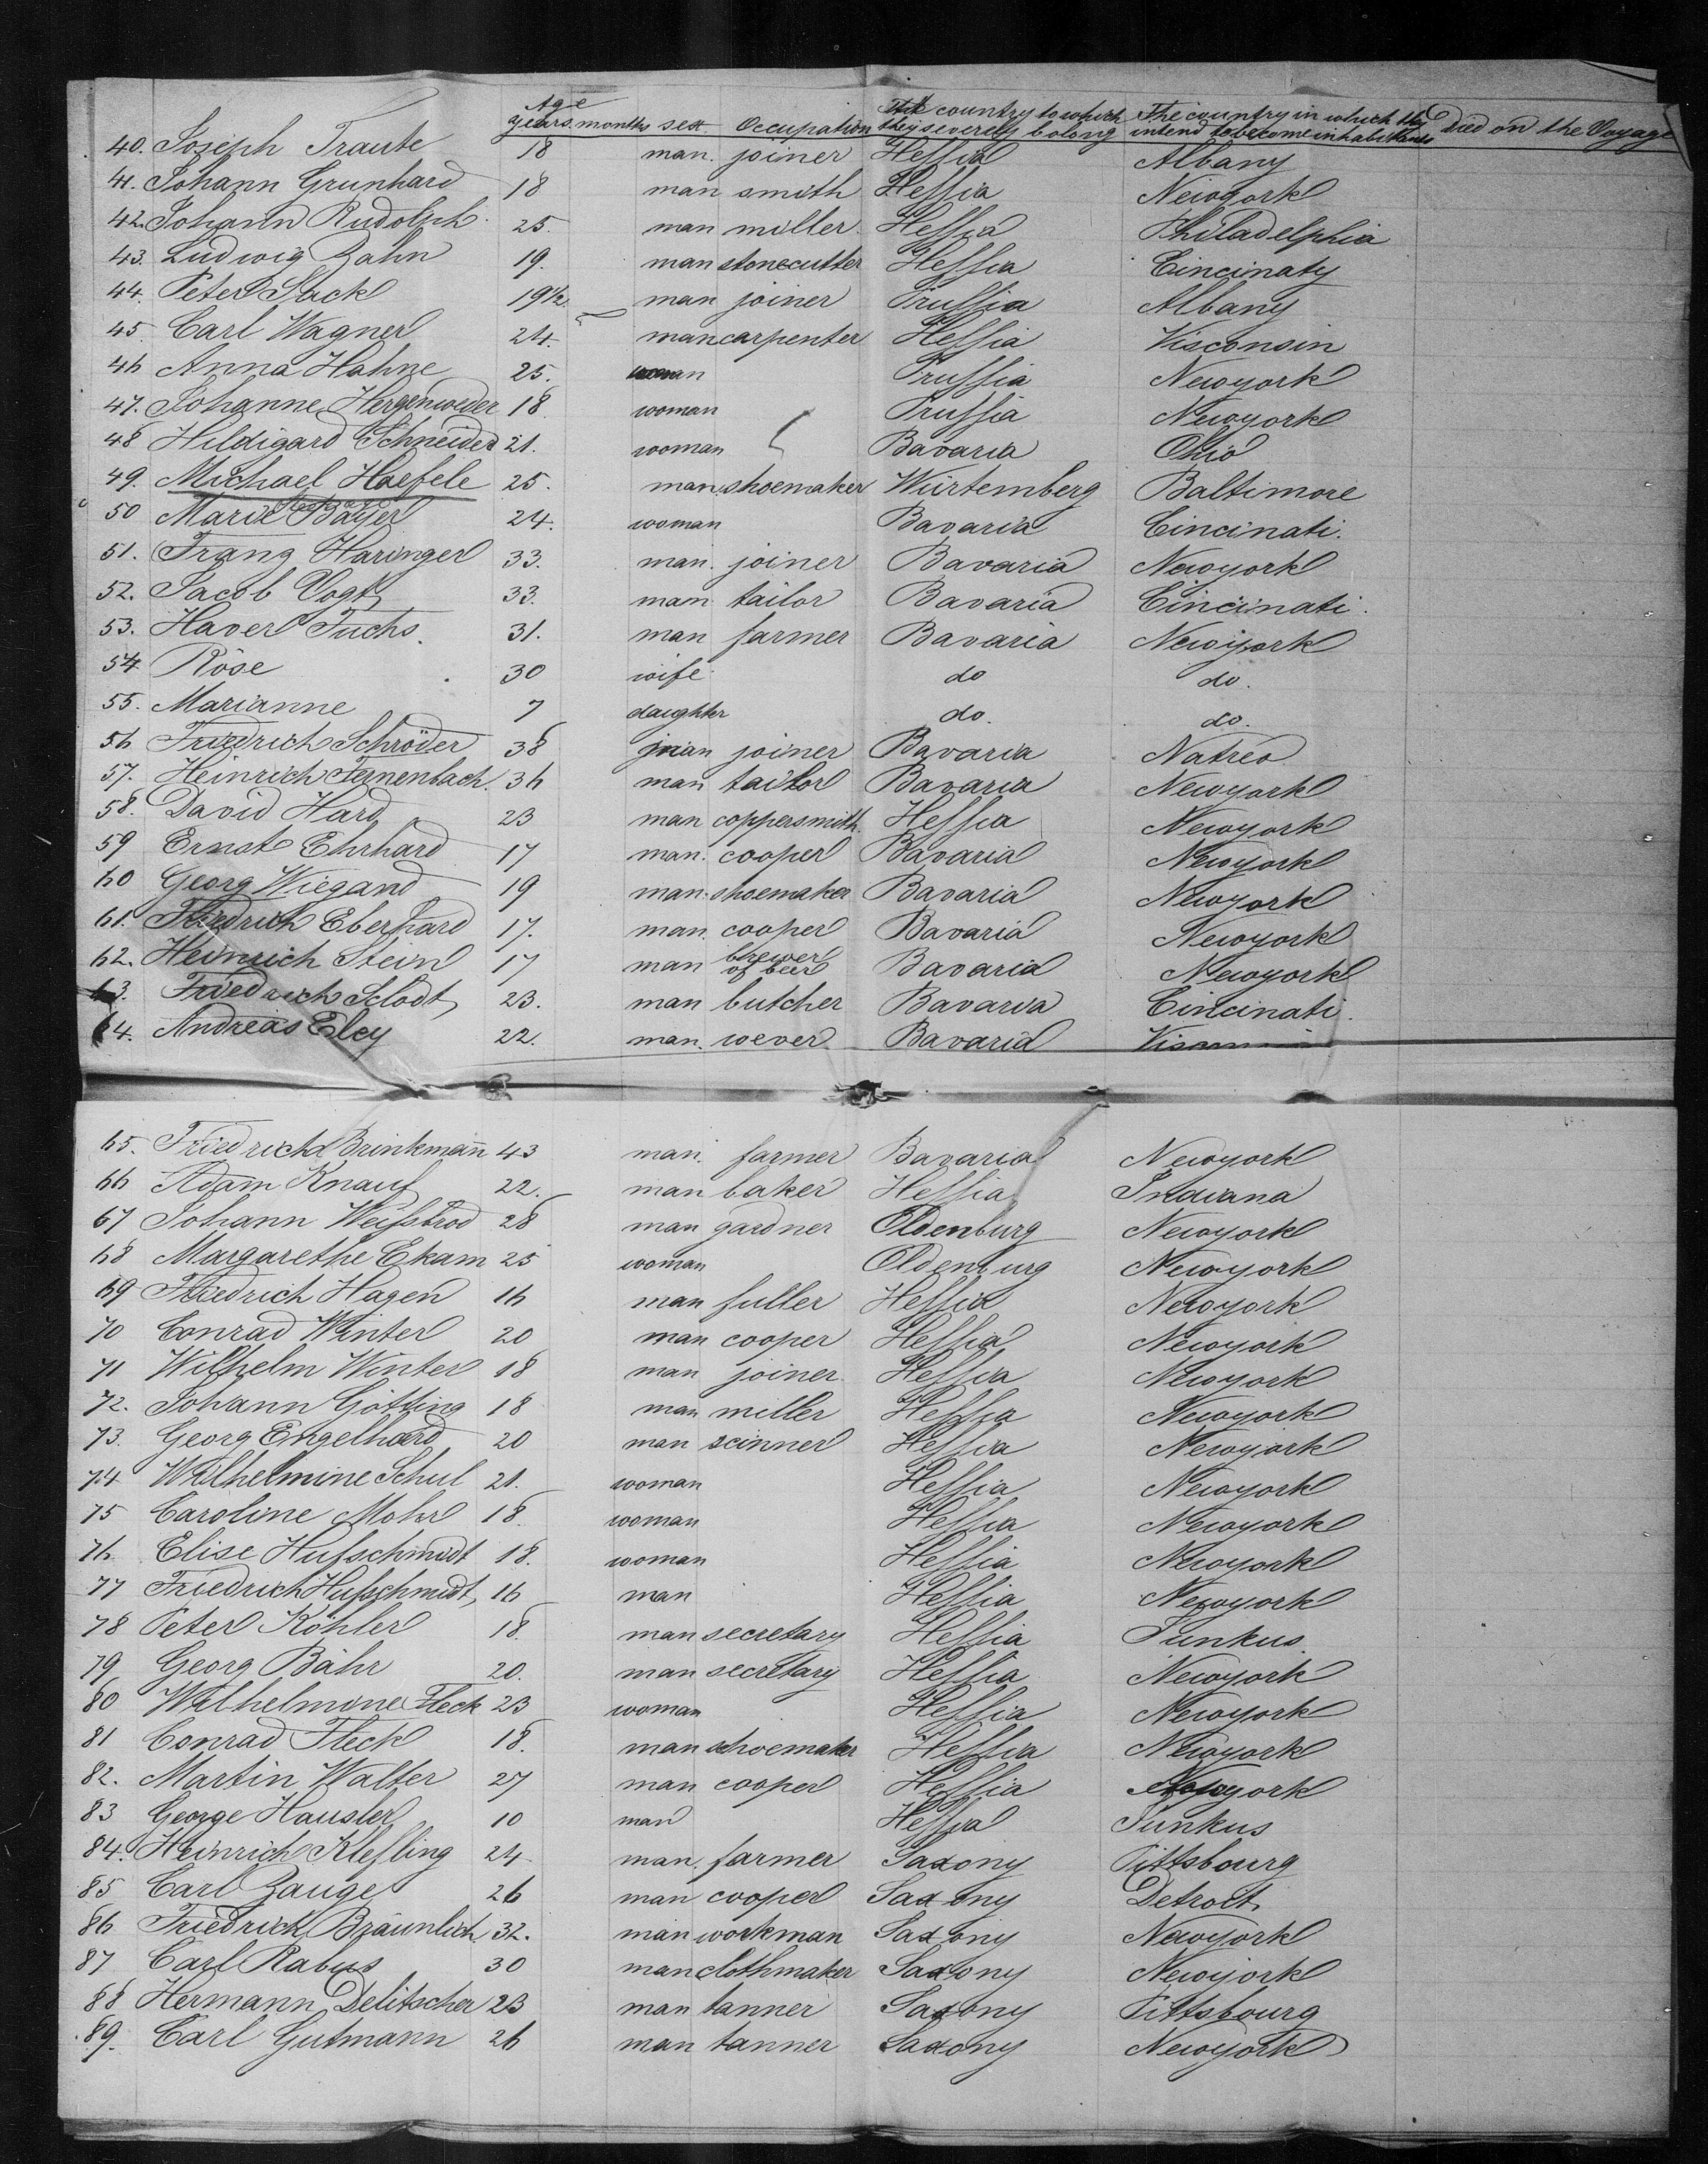 Age
years months sex Occupation The country to which they severely belong The country in which they intend to become inhabitants Died on the Voyage
40. Joseph Traute 18 man. joiner Hessia Albany
41. Johann Grunhard 18 man smith Hessia Newyork
42. Johann Rudolph 25. man miller. Hessia Philadelphia
43. Ludwig Zahn 19. man stonecutter Hessia Cincinaty
44. Peter Stack 19½. man joiner Prussia Albany
45. Carl Wagner 24. man carpenter Hessia Visconsin
46 Anna Hahne 25. woman Prussia Newyork
47. Johanne Hergenroeder 18 woman Prussia Newyork
48 Hildigard Schneider 21. woman Bavaria Ohio
49. Michael Haefele 25. man shoemaker Würtemberg Baltimore
50 Marie Bayer 24. woman Bavaria Cincinati.
51. Franz Haringer 33. man. joiner Bavaria Newyork
52. Jacob Vogt 33. man tailor Bavaria Cincinati.
53. Xaver Fuchs. 31. man farmer Bavaria Newyork
54 Röse 30 wife do do.
55. Marianne 7 daughter do. do.
56 Friedrich Schröder 38 man joiner Bavaria Natreo
57. Heinrich Fernenbach. 36 man tailor Bavaria Newyork
58. David Hard 23 man coppersmith. Hessia Newyork
59 Ernst Ehrhard 17 man. cooper Bavaria Newyork
60 Georg Wiegand 19 man. shoemaker Bavaria Newyork
61. Friedrich Eberhard 17. man. cooper Bavaria Newyork
62. Heinrich Stein 17 man brewer of beer Bavaria Newyork
63. Friedrich Sclodt 23. man butcher Bavaria Cincinati.
64. Andreas Eley 22. man. wever Bavaria
65. Friedrich Brinkmann 43 man. farmer Bavaria Newyork
66 Adam Knauf 22. man baker Hessia Indiana
67 Johann Weissbrod 28 man gardner Oldenburg Newyork
68 Margarethe Ekam 25 woman Oldenburg Newyork
69 Friedrich Hagen 16 man fuller Hessia Newyork
70 Conrad Winter 20 man cooper Hessia Newyork
71 Wilhelm Winter 18 man joiner Hessia Newyork
72. Johann Götting 18 man miller Hessia Newyork
73. Georg Engelhard 20 man scinner Hessia Newyork
74 Wilhelmine Schul 21. woman Hessia Newyork
75 Caroline Mohr 18. woman Hessia Newyork
76. Elise Hufschmidt 18. woman Hessia Newyork
77 Friedrich Hufschmidt 16 man Hessia Newyork
78 Peter Köhler 18. man secretary Hessia Junkus.
79 Georg Bähr 20. man secretary Hessia Newyork
80 Wilhelmine Fleck 23 woman Hessia Newyork
81 Conrad Fleck 18. man schoemaker Hessia Newyork
82. Martin Walter 27 man cooper Hessia Newyork
83 George Hausler 10 man Hessia Junkus
84. Heinrich Klessling 24 man. farmer Saxony Pittsbourg
85 Carl Zauge 26 man cooper Saxony Detroit
86 Friedrich Bräunlich. 32. man workman Saxony Newyork
87 Carl Rabus 30 man clothmaker Saxony Newyork
88 Hermann Delitscher 23 man tanner Saxony Pittsbourg
89. Carl Gutmann 26 man tanner Saxony Newyork